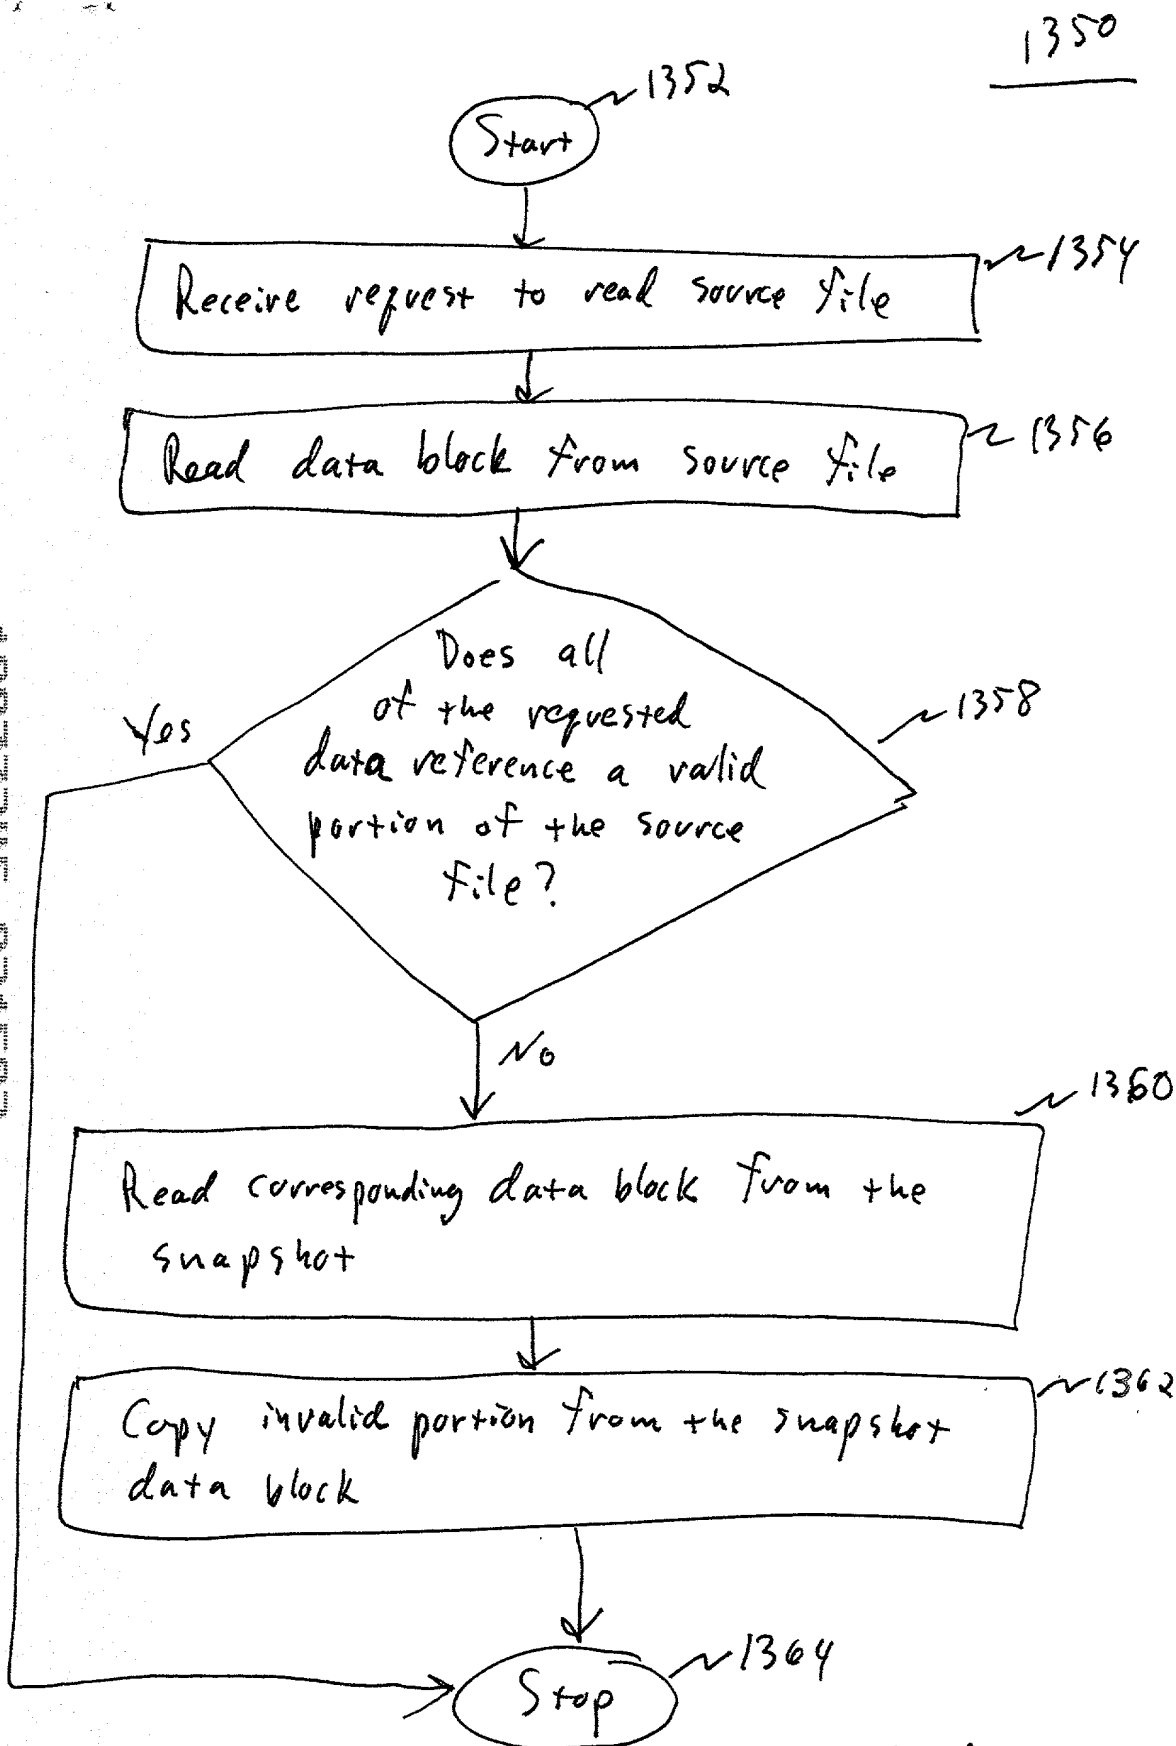 1350
1352
Start
1354
Receive request to read source file
1356
Read data block from source file
Does all
of the requested
data reference a valid
portion of the source
file?
1358
Yes
No
1360
Read corresponding data block from the
snapshot
1362
Copy invalid portion from the snapshot
data block
1364
Stop